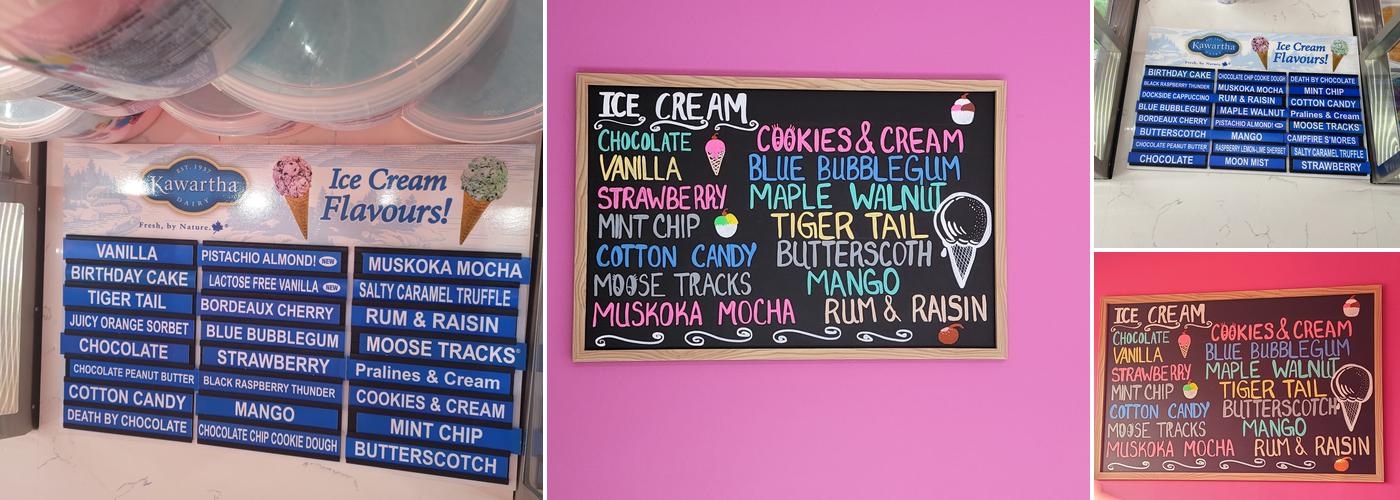 EST. 1937
Kawartha
DAIRY
Fresh, by Nature.
Ice Cream
Flavours!
VANILLA
BIRTHDAY CAKE
TIGER TAIL
JUICY ORANGE SORBET
CHOCOLATE
CHOCOLATE PEANUT BUTTER
COTTON CANDY
DEATH BY CHOCOLATE
PISTACHIO ALMOND! NEW
LACTOSE FREE VANILLA NEW
BORDEAUX CHERRY
BLUE BUBBLEGUM
STRAWBERRY
BLACK RASPBERRY THUNDER
MANGO
CHOCOLATE CHIP COOKIE DOUGH
MUSKOKA MOCHA
SALTY CARAMEL TRUFFLE
RUM & RAISIN
MOOSE TRACKS
Pralines & Cream
COOKIES & CREAM
MINT CHIP
BUTTERSCOTCH
ICE CREAM
CHOCOLATE
VANILLA
STRAWBERRY
MINT CHIP
COTTON CANDY
MOOSE TRACKS
MUSKOKA MOCHA
COOKIES & CREAM
BLUE BUBBLEGUM
MAPLE WALNUT
TIGER TAIL
BUTTERSCOTH
MANGO
RUM & RAISIN
Kawartha
DAIRY
Fresh, by Nature.
Ice Cream
Flavours!
BIRTHDAY CAKE
BLACK RASPBERRY THUNDER
DOCKSIDE CAPPUCCINO
BLUE BUBBLEGUM
BORDEAUX CHERRY
BUTTERSCOTCH
CHOCOLATE PEANUT BUTTER
CHOCOLATE
CHOCOLATE CHIP COOKIE DOUGH
MUSKOKA MOCHA
RUM & RAISIN
MAPLE WALNUT
PISTACHIO ALMOND!
MANGO
RASPBERRY LEMON-LIME SHERBET
MOON MIST
DEATH BY CHOCOLATE
MINT CHIP
COTTON CANDY
Pralines & Cream
MOOSE TRACKS
CAMPFIRE S'MORES
SALTY CARAMEL TRUFFLE
STRAWBERRY
ICE CREAM
CHOCOLATE
VANILLA
STRAWBERRY
MINT CHIP
COTTON CANDY
MOOSE TRACKS
MUSKOKA MOCHA
COOKIES & CREAM
BLUE BUBBLEGUM
MAPLE WALNUT
TIGER TAIL
BUTTERSCOTCH
MANGO
RUM & RAISIN